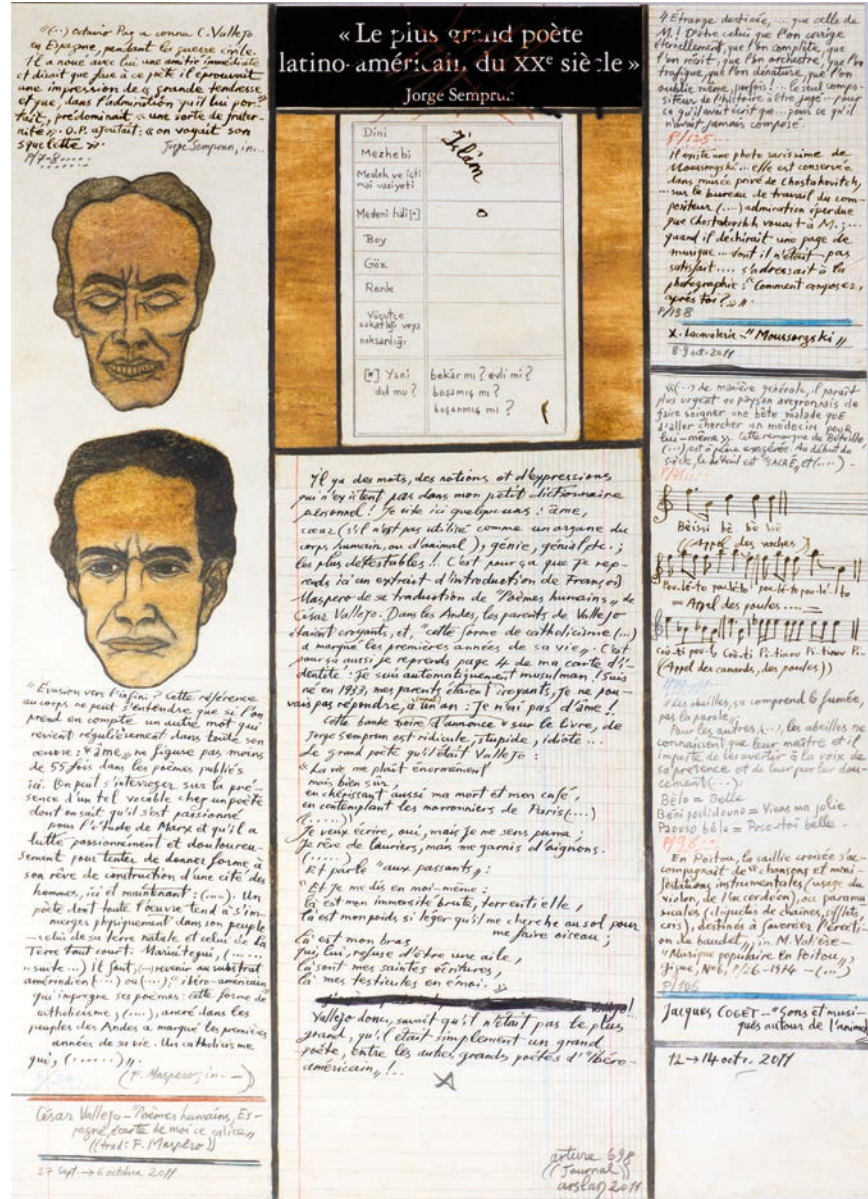 "(...) Octavio Paz a connu C. Vallejo
en Espagne, pendant la guerre civile.
Il a noué avec lui une amitié immédiate
et disait que face à ce poète il éprouvait
une impression de « grande tendresse
et que, dans l'admiration qu'il lui por-
tait, prédominait « une sorte de frater-
nité ». O.P. ajoutait: « on voyait son
squelette ».
Jorge Semprun, in...
P/7-8.....
"Évasion vers l'infini ? Cette référence
au corps ne peut s'entendre que si l'on
prend en compte un autre mot qui
revient régulièrement dans toute son
œuvre : "âme„ ne figure pas moins
de 55 fois dans les poèmes publiés
ici. On peut s'interroger sur la pré-
sence d'un tel vocable chez un poète
dont on sait qu'il s'est passionné
pour l'étude de Marx et qu'il a
lutté passionnément et douloureu-
sement pour tenter de donner forme à
son rêve de construction d'une cité des
hommes, ici et maintenant : (...). Un
poète dont toute l'œuvre tend à s'im-
merger physiquement dans son peuple
– celui de sa terre natale et celui de la
Terre tout court. Mariátegui, (.....
...suite...) Il faut, (...) revenir au substrat
amérindien (...) ou (...), "ibéro-américain"
qui imprègne ses poèmes: cette forme de
catholicisme, (...), ancré dans les
peuples des Andes a marqué les premières
années de sa vie. Un catholicisme
qui, (......) „.
(F. Maspero, in. —)
César Vallejo – "Poèmes humains, Es-
pagne, écarte de moi ce calice„
((trad: F. Maspero))
27 sept. → 6 octobre 2011
« Le plus grand poète
latino-américain du XXe siècle »
Jorge Semprun
Dini
İslâm
Mezhebi
Meslek ve içti
mai vaziyeti
Medeni hali [*]
o
Boy
Göz
Renk
Vücutçe
sakatlığı veya
noksanlığı
[*] Yani bekâr mı ? evli mi ?
dul mu ? boşamış mı ?
boşanmış mı ?
Il y a des mots, des notions et d'expressions
qui n'existent pas dans mon petit dictionnaire
personnel ! Je cite ici quelques uns : âme,
cœur (s'il n'est pas utilisé comme un organe du
corps humain, ou d'animal), génie, génial etc. ;
les plus détestables !! C'est pour ça que je rep-
rends ici un extrait d'introduction de François
Maspero de sa traduction de "Poèmes humains„ de
César Vallejo. Dans les Andes, les parents de Vallejo
étaient croyants, et, "cette forme de catholicisme (...)
a marqué les premières années de sa vie„. C'est
pour ça aussi je reprends page 4 de ma carte d'i-
dentité : je suis automatiquement musulman ! Suis
né en 1933, mes parents étaient croyants, je ne pou-
vais pas répondre, à un an : Je n'ai pas d'âme !!
Cette bande noire d'annonce sur le livre, de
Jorge Semprun est ridicule, stupide, idiote ...
Le grand poète qu'était Vallejo :
« La vie me plaît énormément
mais bien sûr
en chérissant aussi ma mort et mon café,
en contemplant les marronniers de Paris (....)
(.....)
Je veux écrire, oui, mais je me sens puma ;
Je rêve de lauriers, mais me garnis d'oignons.
(.....)
Et parle "aux passants„ :
"Et je me dis en moi-même :
Là est mon immensité brute, torrentielle,
là est mon poids si léger qu'il me cherche au sol pour
me faire oiseau ;
là est mon bras
qui, lui, refuse d'être une aile,
là sont mes saintes écritures,
là mes testicules en émoi. „
Vallejo donc, savait qu'il n'était pas le plus
grand, qu'il était simplement un grand
poète, entre les autres grands poètes d' "Ibéro-
américain„ !..
arture 698
((Journal))
arslan 2011
"Étrange destinée, ... que celle de
M. ! D'être celui que l'on corrige
éternellement, que l'on complète, que
l'on récrit, que l'on orchestre, que l'on
trafique, que l'on dénature, que l'on
oublie même, parfois !... le seul compo-
siteur de l'histoire à être jugé... pour
ce qu'il avait écrit que ... pour ce qu'il
n'avait jamais composé.
P/125...
Il existe une photo rarissime de
Moussorgski ... elle est conservée
dans musée privé de Chostakovitch,
... sur le bureau de travail du com-
positeur (...) admiration éperdue
que Chostakovitch vouait à M. ; ...
quand il déchirait une page de
musique ... dont il n'était pas
satisfait .... s'adressait à la
photographie : "Comment composer,
après toi ? „ „.
P/138
X. Lacavalerie – "Moussorgski„
8-9 oct. 2011
«(...) de manière générale, il paraît
plus urgent au paysan aveyronnais de
faire soigner une bête malade que
d'aller chercher un médecin pour
lui-même ». Cette remarque de Béteille,
(...), est à peine exagérée. Au début du
siècle, le bétail est "SACRÉ„ et (....) –
Bèissi bè bè bè
((Appel des vaches))
Pou-lé-to pou-léto ! pou-lé-to pou-lé-to
= Appel des poules .... =
Coà-ti pou-lo Coà-ti Pi-tinou Pi-tinou Pi-
((Appel des canards, des poules))
"Les abeilles, ça comprend la fumée,
pas la parole„
Pour les autres, (...), les abeilles ne
connaissent que leur maître et il
importe de les avertir à la voix de
sa présence et de leur parler dou-
cement (...) :
Bèlo = Belle
Bèni poulidouno = Viens ma jolie
Paouso bèlo = Pose-toi belle.
P/98...
En Poitou, la saillie croisée s'ac-
compagnait de « chansons et mani-
festations instrumentales (usage du
violon, de l'accordéon), ou paramu-
sicales (cliquetis de chaînes, sifflets,
cris), destinés à favoriser l'érecti-
on du baudet„, in M. Valière –
"Musique populaire en Poitou„,
Gigue, N°6, P/26 – 1974 – (...)
P/106
Jacques COGET – "Sons et musi-
ques autour de l'anim
12 → 14 oct. 2011